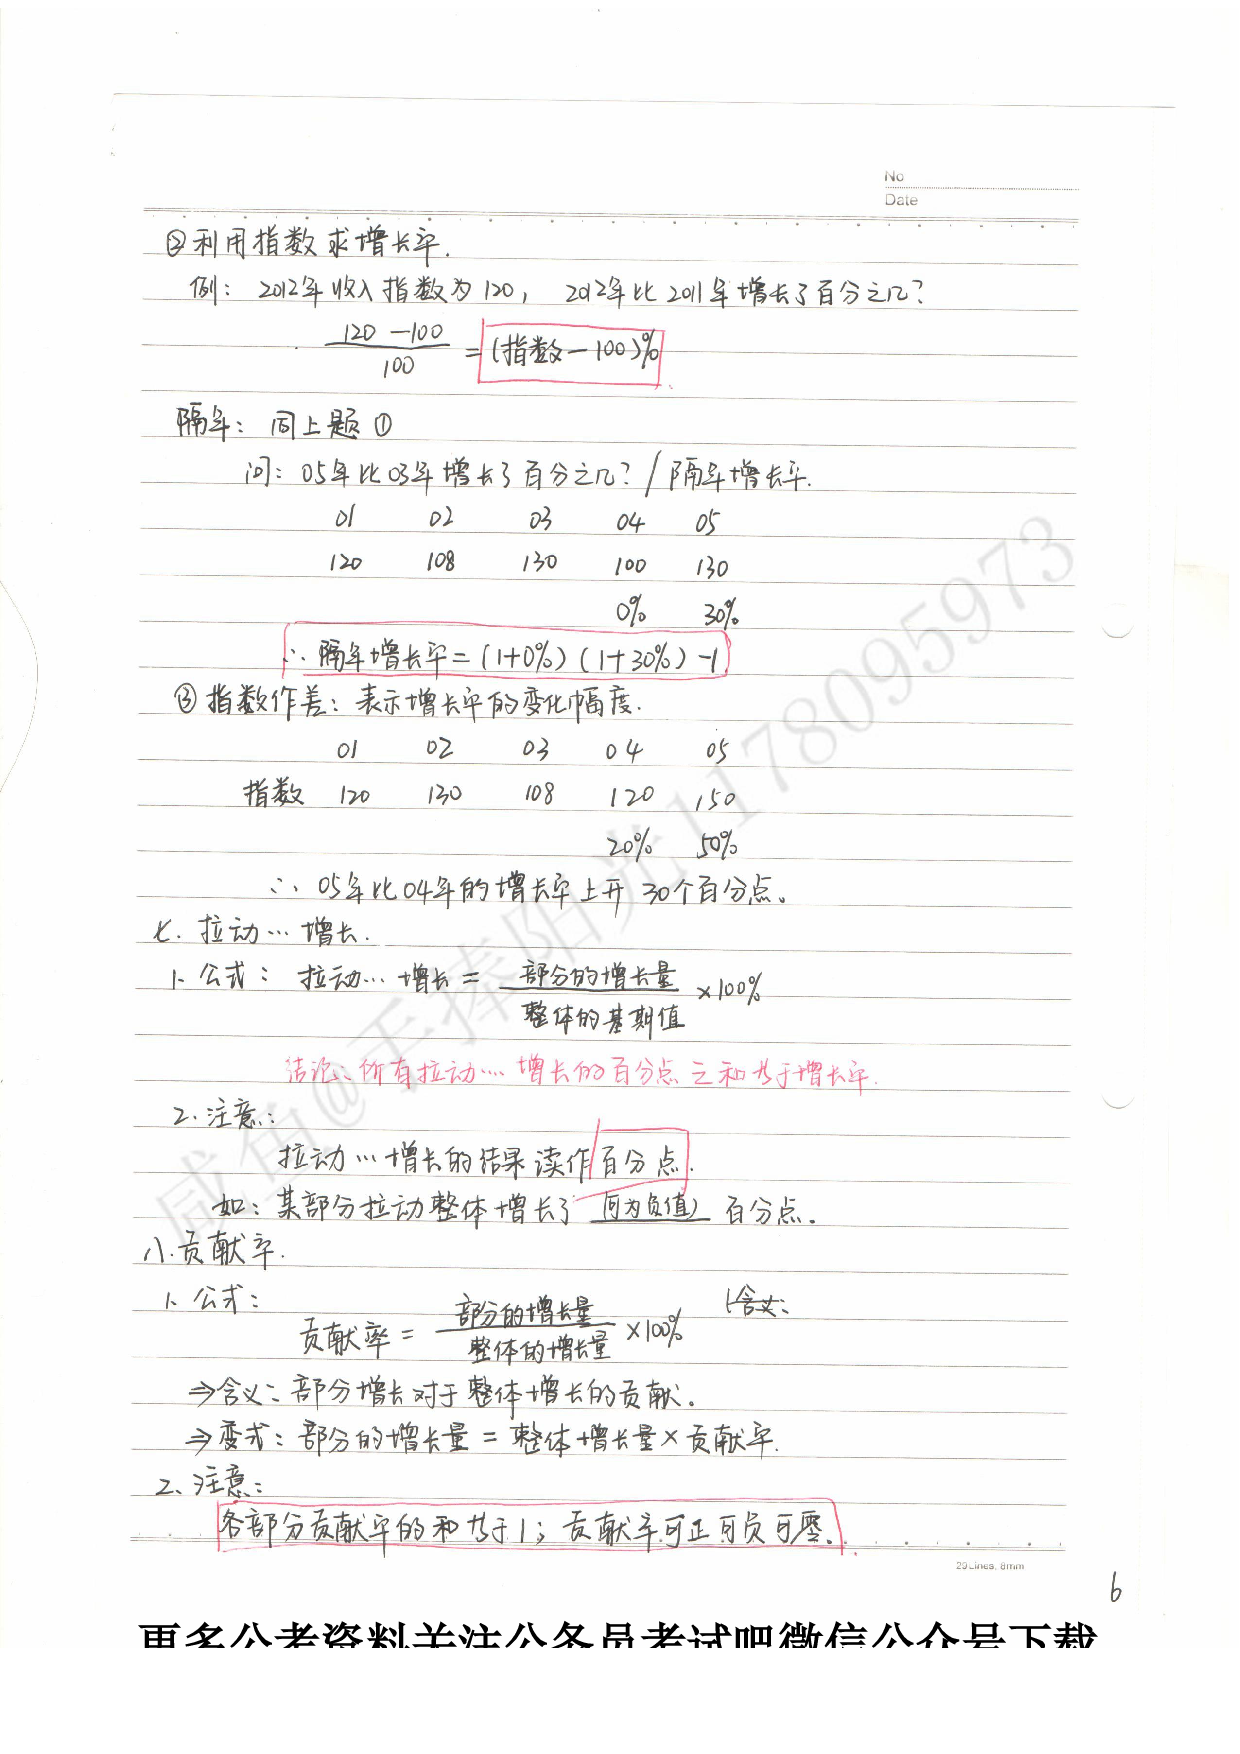 No
Date
②利用指数求增长率.
例：2012年收入指数为120，2012年比2011年增长了百分之几？
120-100
100
=(指数-100)%
隔年：同上题①
问：05年比03年增长了百分之几？/隔年增长率.
01 02 03 04 05
120 108 130 100 130
0% 30%
∴隔年增长率=(1+0%)(1+30%)-1
③指数作差：表示增长率的变化幅度.
01 02 03 04 05
指数 120 130 108 120 150
20% 50%
∴05年比04年的增长率上升30个百分点。
七.拉动…增长.
1.公式：拉动…增长=部分的增长量/整体的基期值×100%
结论：所有拉动…增长的百分点之和等于增长率.
2.注意：
拉动…增长的结果读作百分点.
如：某部分拉动整体增长了(可为负值)百分点。
八.贡献率.
1.公式：
贡献率=部分的增长量/整体的增长量×100%
(含义：
⇒含义：部分增长对于整体增长的贡献.
⇒变式：部分的增长量=整体增长量×贡献率.
2、注意：
各部分贡献率的和为于1；贡献率可正可负可零。
20 Lines, 8mm
6
更多公考资料关注公务员考试吧微信公众号下载
咸鱼@手捧阳光1178095973